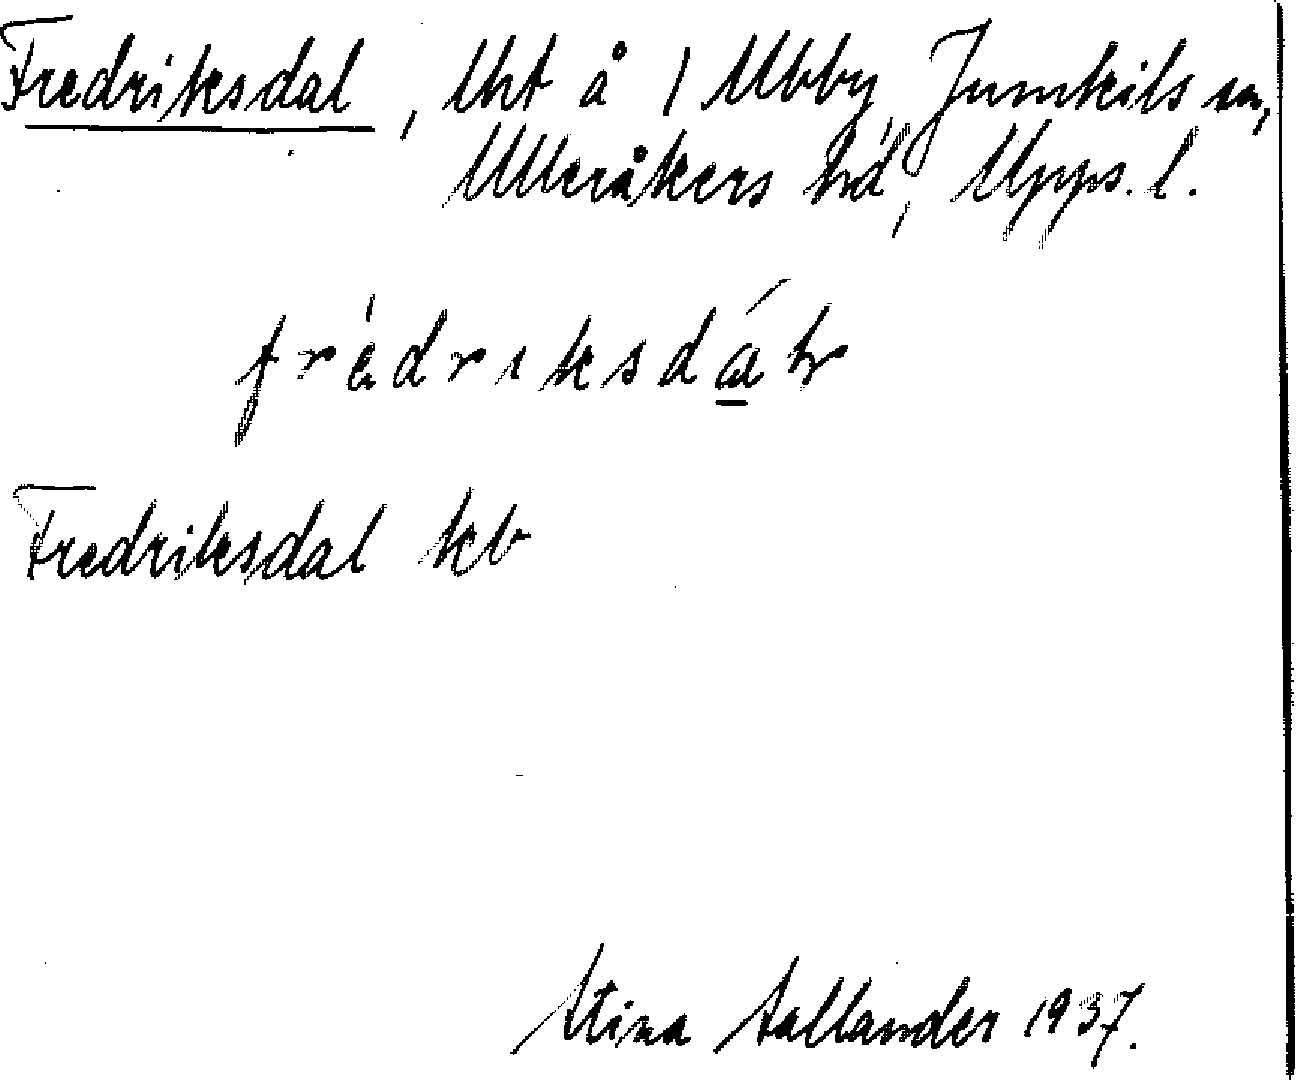 Fredriksdal, lht å 1 Ubby, Jumkils sn,
Ulleråkers hd, Upps. l.
Fredriksdal kb
Stina Sallander 1937.